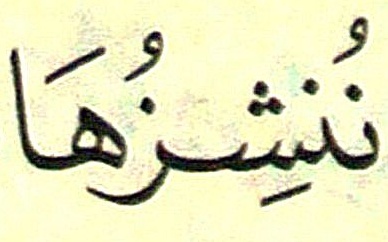 نُنشِزُهَا